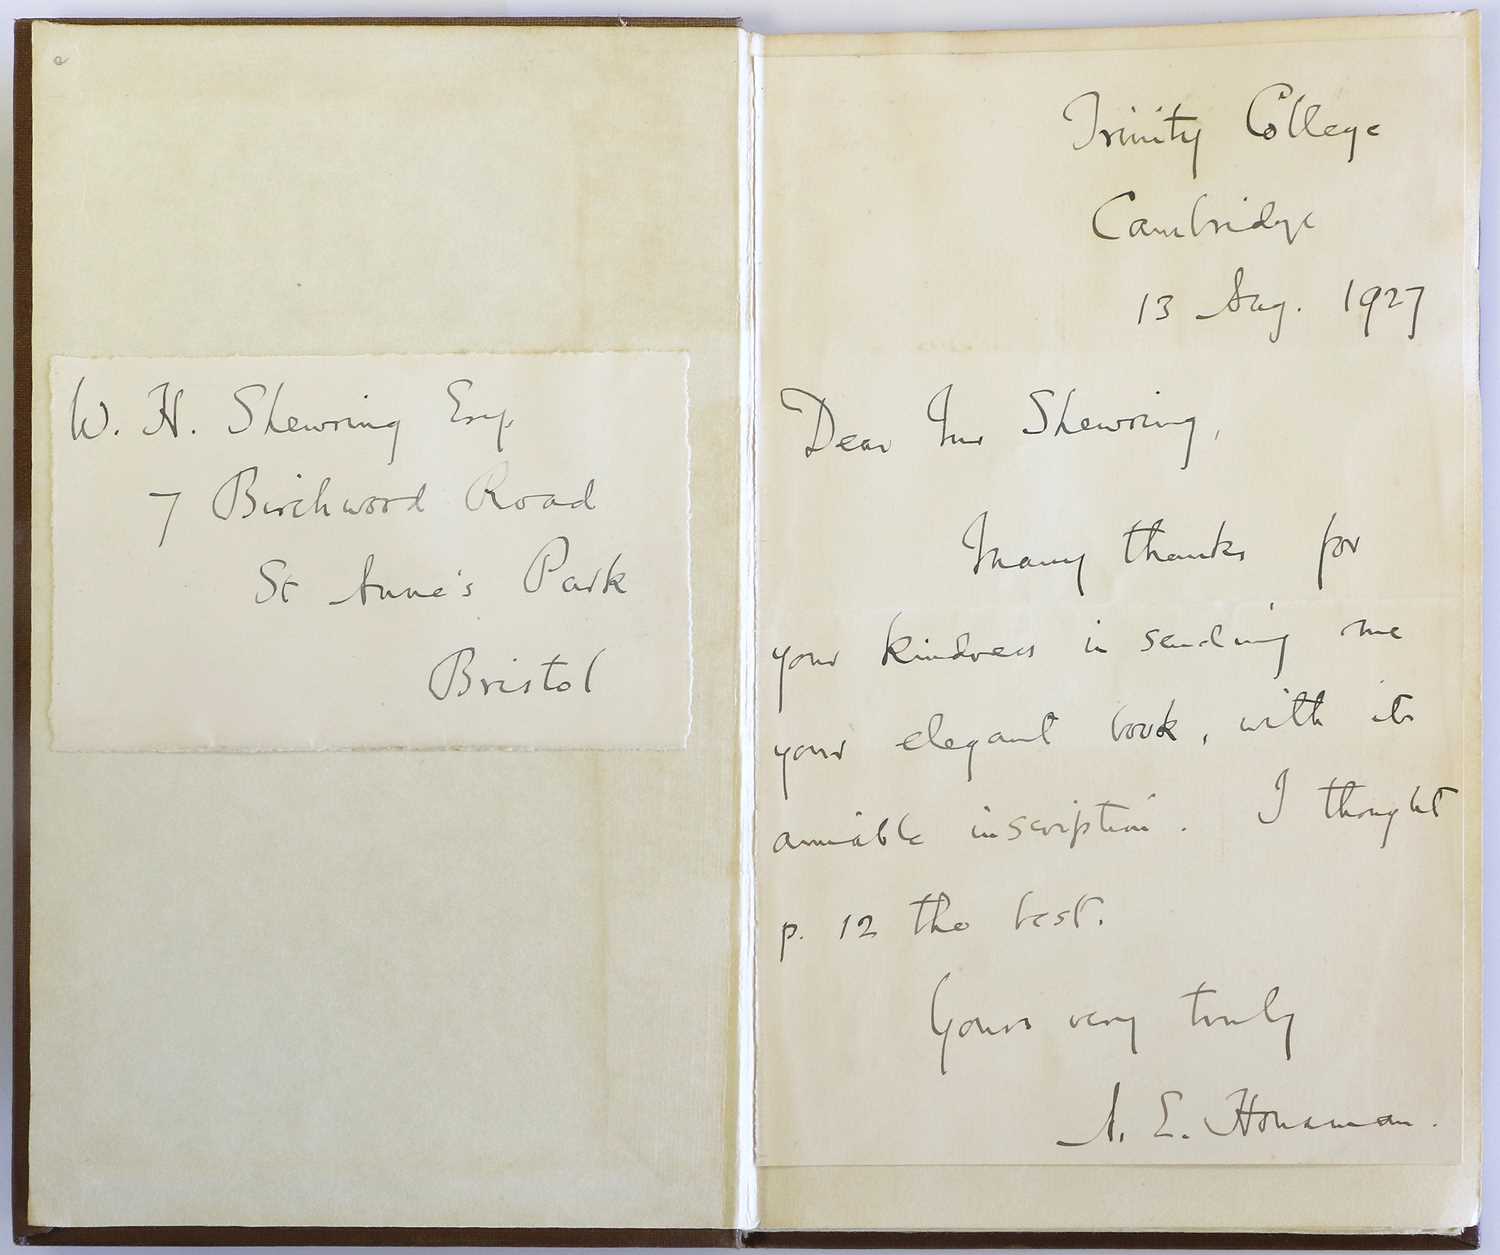 W. H. Shewring Esq.
7 Birchwood Road
St Anne's Park
Bristol
Trinity College
Cambridge
13 Aug. 1927
Dear Mr Shewring,
Many thanks for
your kindness in sending me
your elegant book, with its
amiable inscription. I thought
p. 12 the best.
Yours very truly
A. E. Housman.